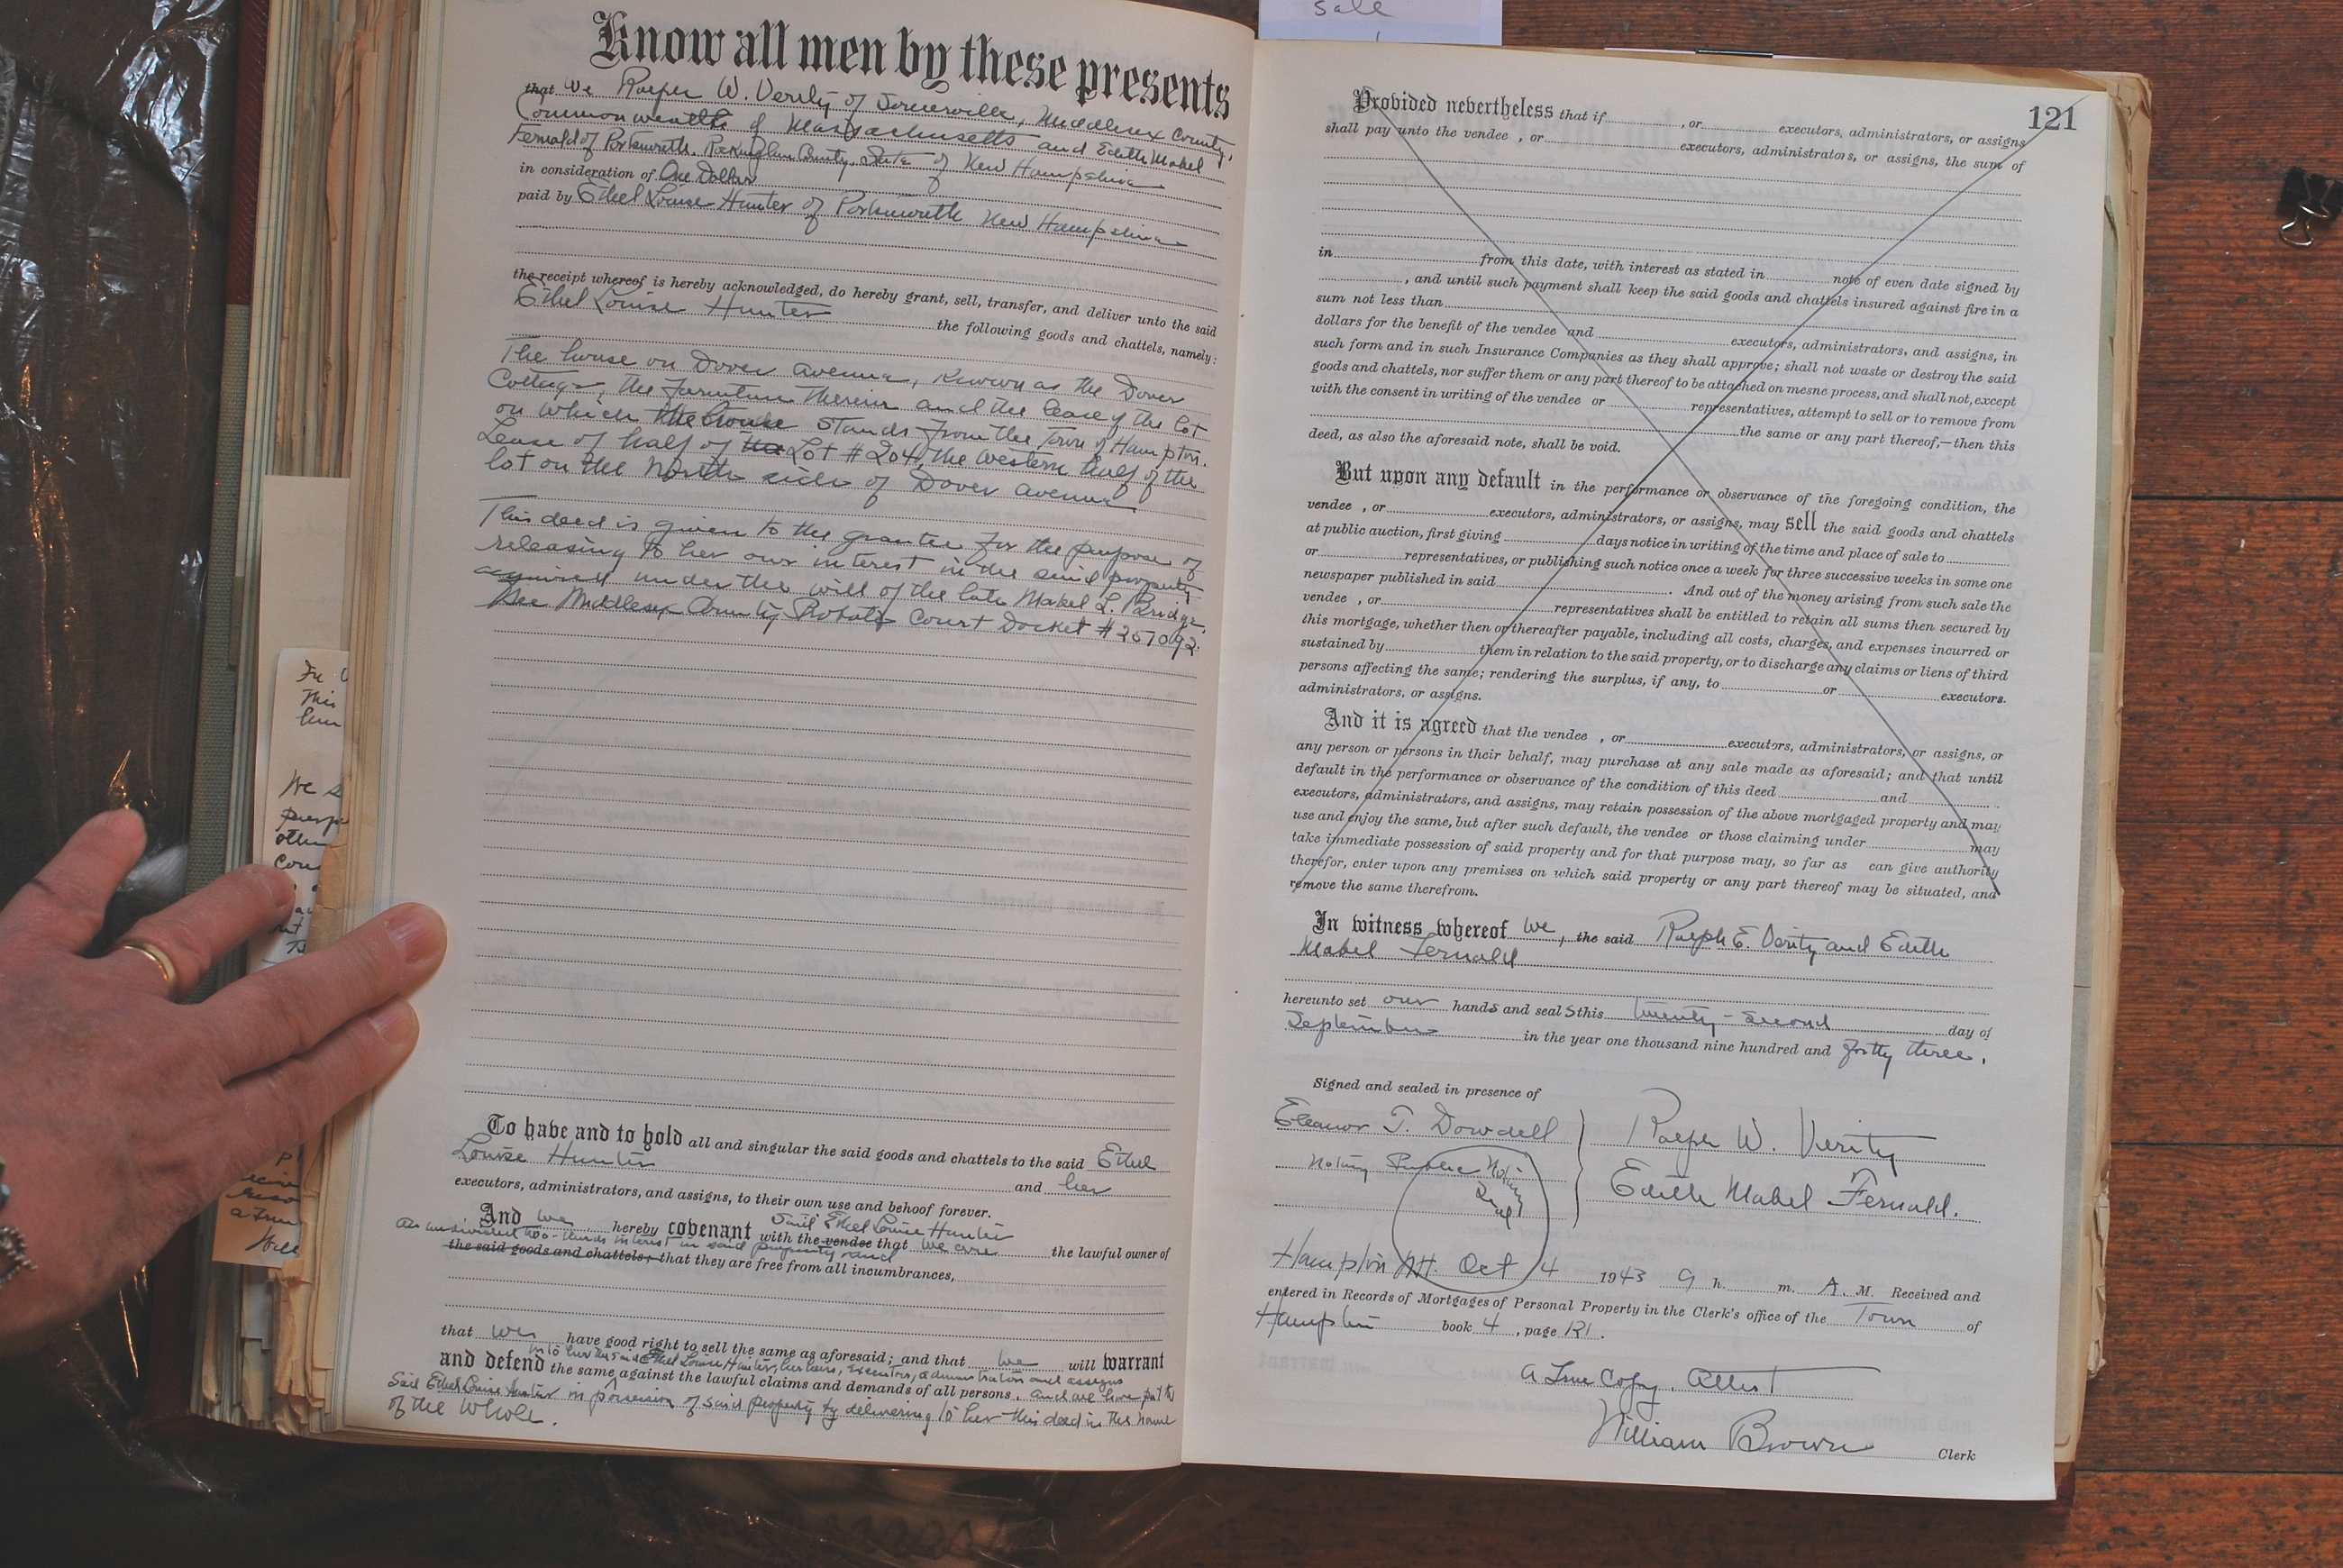 sale
Know all men by these presents
that We Ralph W. Verity of Somerville, Middlesex County,
Commonwealth of Massachusetts and Edith Mabel
Fernald of Portsmouth, Rockingham County, State of New Hampshire
in consideration of One Dollar
paid by Ethel Louise Hunter of Portsmouth New Hampshire
the receipt whereof is hereby acknowledged, do hereby grant, sell, transfer, and deliver unto the said
Ethel Louise Hunter the following goods and chattels, namely:
The house on Dover Avenue, known as the Dover
Cottage, the furniture therein and the lease of the lot
on which the house stands from the Town of Hampton.
Lease of half of the Lot # 204, the western half of the
lot on the North side of Dover Avenue
This deed is given to the grantee for the purpose of
releasing to her our interest in the said property
acquired under the will of the late Mabel L. Bridge.
See Middlesex County Probate Court Docket # 257092.
To have and to hold all and singular the said goods and chattels to the said Ethel
Louise Hunter and her
executors, administrators, and assigns, to their own use and behoof forever.
And we hereby covenant with the vendee said Ethel Louise Hunter that we are the lawful owner of
an undivided two-thirds interest in said property and
the said goods and chattels; that they are free from all incumbrances,
that we have good right to sell the same as aforesaid; and that we will warrant
into her the said Ethel Louise Hunter, her heirs, executors, administrators and assigns
and defend the same against the lawful claims and demands of all persons. and we have put the
said Ethel Louise Hunter in possession of said property by delivering to her this deed in the name
of the whole.
121
Provided nevertheless that if , or executors, administrators, or assigns
shall pay unto the vendee , or executors, administrators, or assigns, the sum of
in from this date, with interest as stated in note of even date signed by
, and until such payment shall keep the said goods and chattels insured against fire in a
sum not less than
dollars for the benefit of the vendee and executors, administrators, and assigns, in
such form and in such Insurance Companies as they shall approve; shall not waste or destroy the said
goods and chattels, nor suffer them or any part thereof to be attached on mesne process, and shall not, except
with the consent in writing of the vendee or representatives, attempt to sell or to remove from
the same or any part thereof,—then this
deed, as also the aforesaid note, shall be void.
But upon any default in the performance or observance of the foregoing condition, the
vendee , or executors, administrators, or assigns, may sell the said goods and chattels
at public auction, first giving days notice in writing of the time and place of sale to
or representatives, or publishing such notice once a week for three successive weeks in some one
newspaper published in said . And out of the money arising from such sale the
vendee , or representatives shall be entitled to retain all sums then secured by
this mortgage, whether then or thereafter payable, including all costs, charges, and expenses incurred or
sustained by them in relation to the said property, or to discharge any claims or liens of third
persons affecting the same; rendering the surplus, if any, to or executors.
administrators, or assigns.
And it is agreed that the vendee , or executors, administrators, or assigns, or
any person or persons in their behalf, may purchase at any sale made as aforesaid; and that until
default in the performance or observance of the condition of this deed and
executors, administrators, and assigns, may retain possession of the above mortgaged property and may
use and enjoy the same, but after such default, the vendee or those claiming under may
take immediate possession of said property and for that purpose may, so far as can give authority
therefor, enter upon any premises on which said property or any part thereof may be situated, and
remove the same therefrom.
In witness whereof we, the said Ralph E. Verity and Edith
Mabel Fernald
hereunto set our hands and seals this twenty-second day of
September in the year one thousand nine hundred and forty three.
Signed and sealed in presence of
Eleanor T. Dowdell Ralph W. Verity
Notary Public Notary Seal
Edith Mabel Fernald.
Hampton NH. Oct 4 1943 9 h. m. A. M. Received and
entered in Records of Mortgages of Personal Property in the Clerk's office of the Town of
Hampton book 4, page 121.
A True Copy. Attest
William Brown Clerk